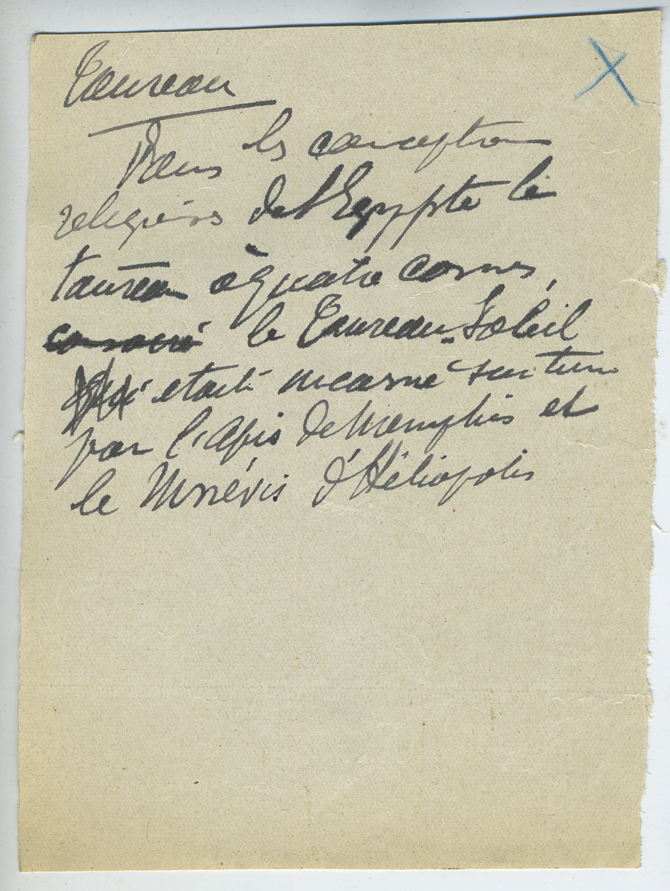 Taureau
Dans les conceptions
religieuses de l'Egypte le
taureau à quatre cornes,
consacré le Taureau-Soleil
était incarné surtout
par l'Apis de Memphis et
le Mnévis d'Héliopolis